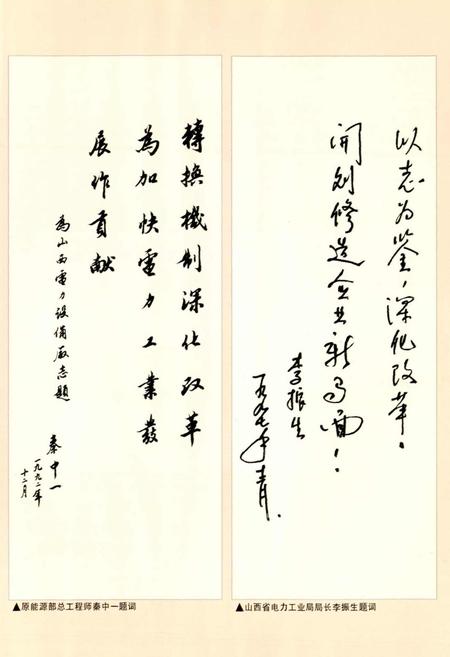 轉換機制深化改革
為加快電力工業發
展作貢献
為山西電力设備廠志題
秦中一
一九九二年
十二月
▲原能源部总工程师秦中一题词
以志为鉴，深化改革。
開创修造企业新局面！
李振生
▲山西省电力工业局局长李振生题词